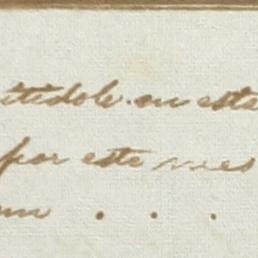 itidole en esta
por este mes